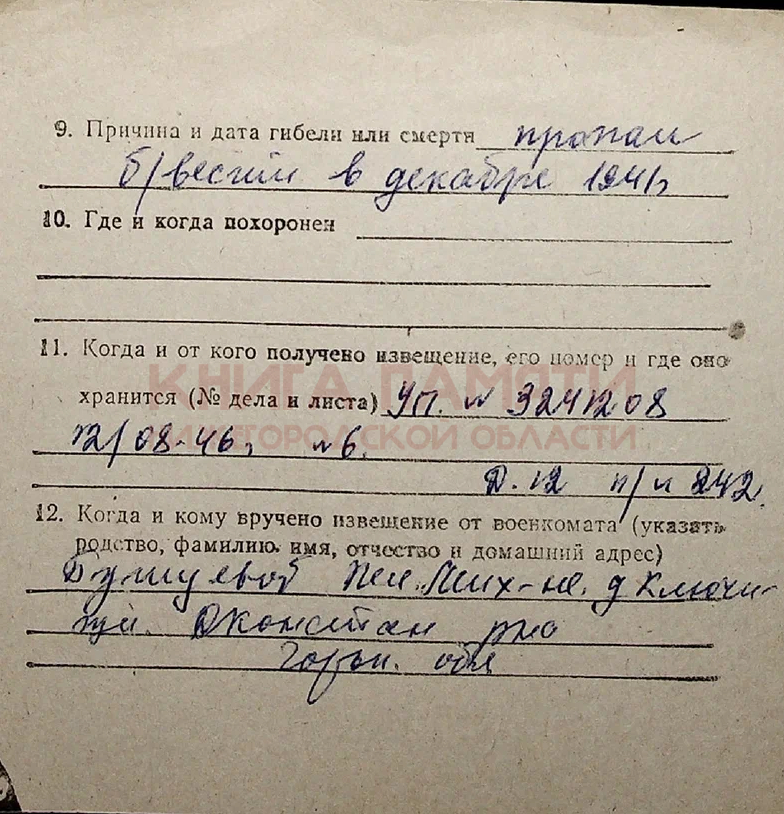 9. Причина и дата гибели или смерти пропал
б/вести в декабре 1941г
10. Где и когда похоронен
11. Когда и от кого получено извещение, его номер и где оно
КНИГА ПАМЯТИ
хранится (№ дела и листа) Уп. № 3241208
НИЖЕГОРОДСКОЙ ОБЛАСТИ
12/08-46г №6.
Д. 12 п/л 242.
12. Когда и кому вручено извещение от военкомата (указать
родство, фамилию, имя, отчество и домашний адрес)
Пел. Мих-не. д Ключи-
Дконстан р-но
Горьк. обл